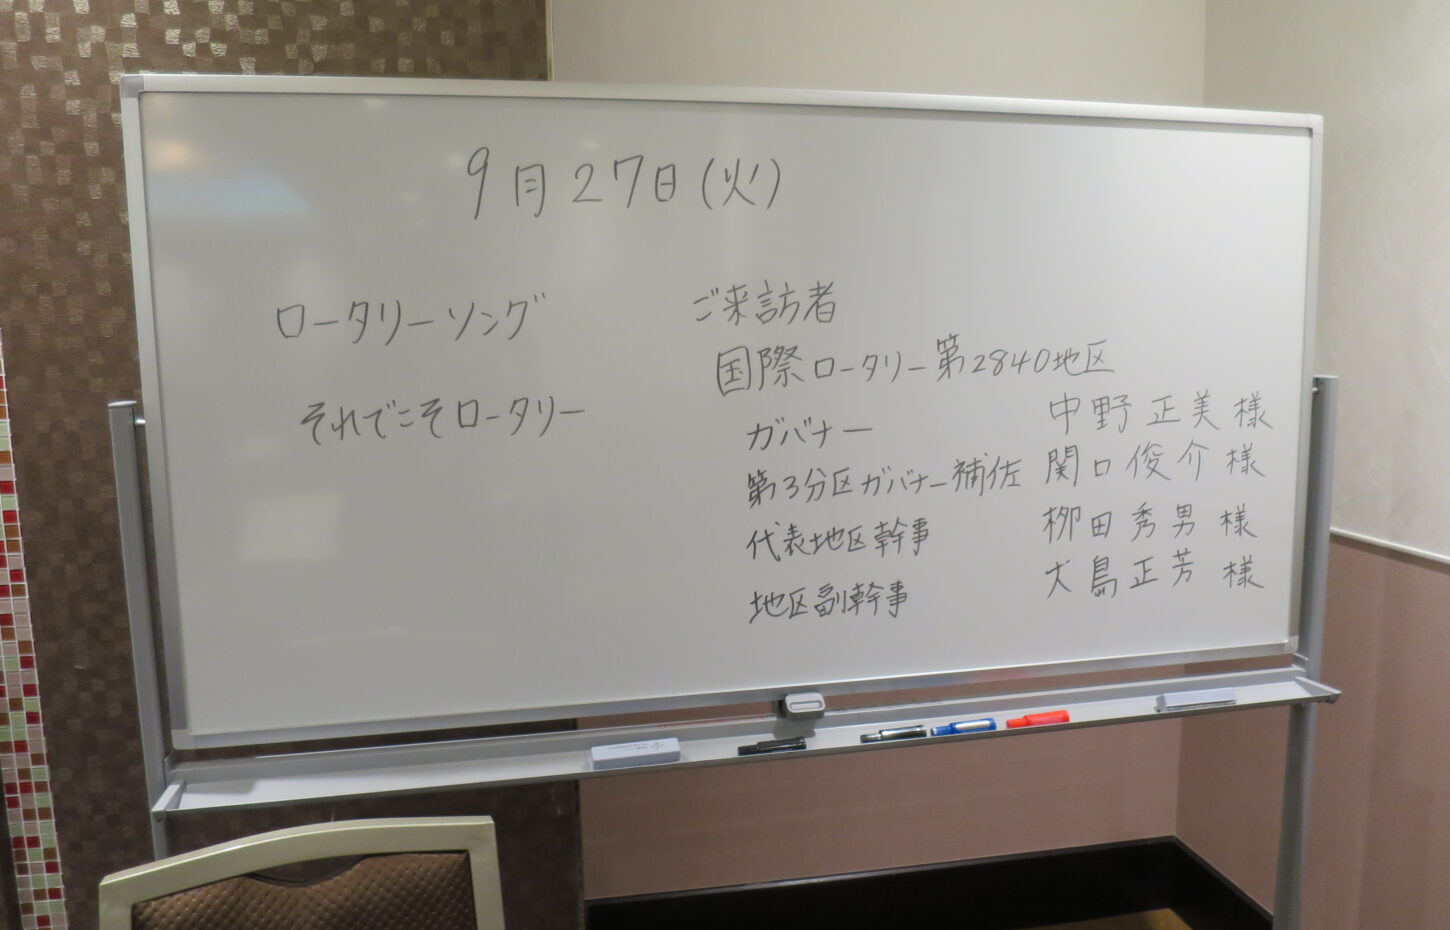 9月27日(火)
ロータリーソング
それでこそロータリー
ご来訪者
国際ロータリー第2840地区
ガバナー 中野正美様
第3分区ガバナー補佐 関口俊介様
代表地区幹事 柳田秀男様
地区副幹事 大島正芳様